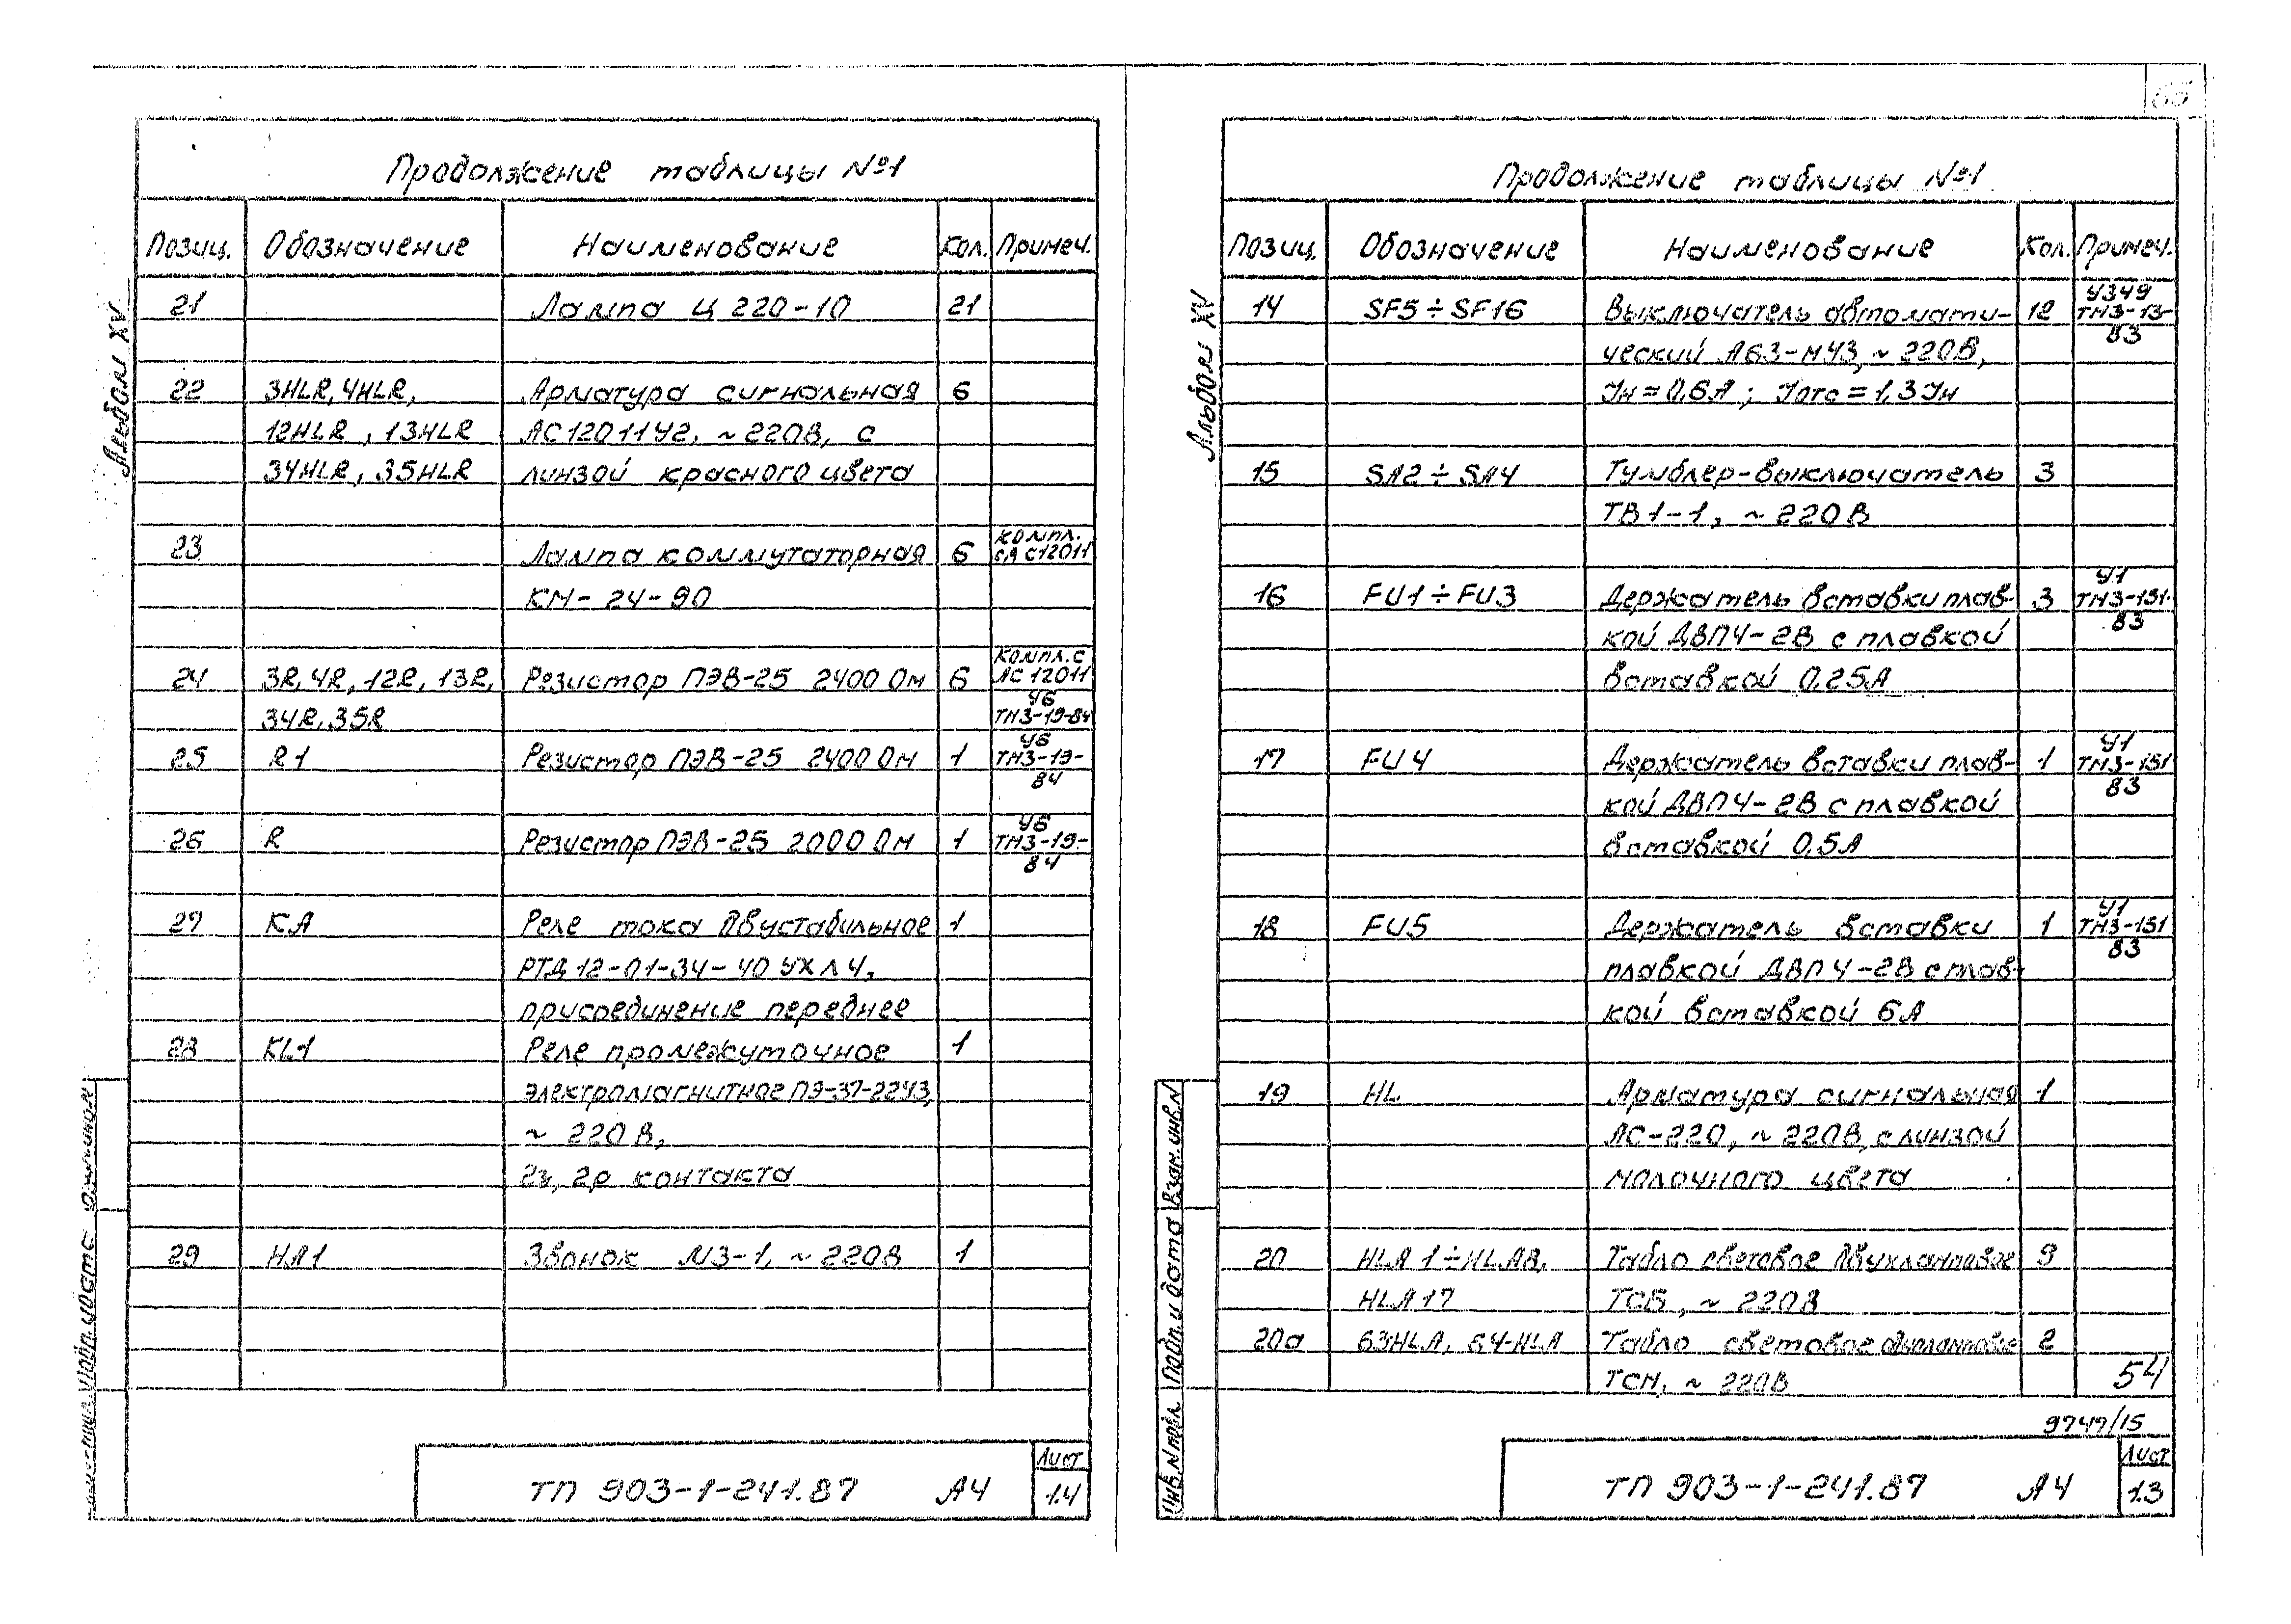 Альбом XV
Продолжение таблицы №1
Позиц. Обозначение Наименование Кол. Примеч.
21 Лампа Ц 220-10 21
22 3HLR, 4HLR, Арматура сигнальная 6
12HLR, 13HLR АС12011У2, ~220В, с
34HLR, 35HLR линзой красного цвета
23 Лампа коммутаторная 6 Компл. с АС12011
КМ-24-90
24 3R, 4R, 12R, 13R, Резистор ПЭВ-25 2400 Ом 6 Компл. с АС12011
34R, 35R У6 ТМ3-19-84
25 R1 Резистор ПЭВ-25 2400 Ом 1 У6 ТМ3-19-84
26 R Резистор ПЭВ-25 2000 Ом 1 У6 ТМ3-19-84
27 KA Реле тока двустабильное 1
РТД 12-01-34-40 УХЛ4,
присоединение переднее
28 KL1 Реле промежуточное 1
электромагнитное ПЭ-37-22У3,
~ 220 В,
2з, 2р контакта
29 HA1 Звонок МЗ-1, ~220В 1
ТП 903-1-241.87 А4
Лист
1.4
Альбом XV
Продолжение таблицы №1
Позиц. Обозначение Наименование Кол. Примеч.
14 SF5÷SF16 Выключатель автомати- 12 У349 ТМ3-13-83
ческий А63-МУ3, ~220В,
Iн=0,6А; Iотс=1,3Iн
15 SA2÷SA4 Тумблер-выключатель 3
ТВ1-1, ~220В
16 FU1÷FU3 Держатель вставки плав- 3 У1 ТМ3-151-83
кой ДВП4-2В с плавкой
вставкой 0,25А
17 FU4 Держатель вставки плав- 1 У1 ТМ3-151 83
кой ДВП4-2В с плавкой
вставкой 0,5А
18 FU5 Держатель вставки 1 У1 ТМ3-151 83
плавкой ДВП4-2В с плав-
кой вставкой 6А
19 HL Арматура сигнальная 1
АС-220, ~220В, с линзой
молочного цвета
20 HLA1÷HLA8, Табло световое двухламповое 9
HLA17 ТСБ, ~220В
20а 63HLA, 64-HLA Табло световое 2
ТСМ, ~220В
54
9747/15
Инв.N подл. Подп. и дата Взам. инв.N
ТП 903-1-241.87 А4
Лист
1.3